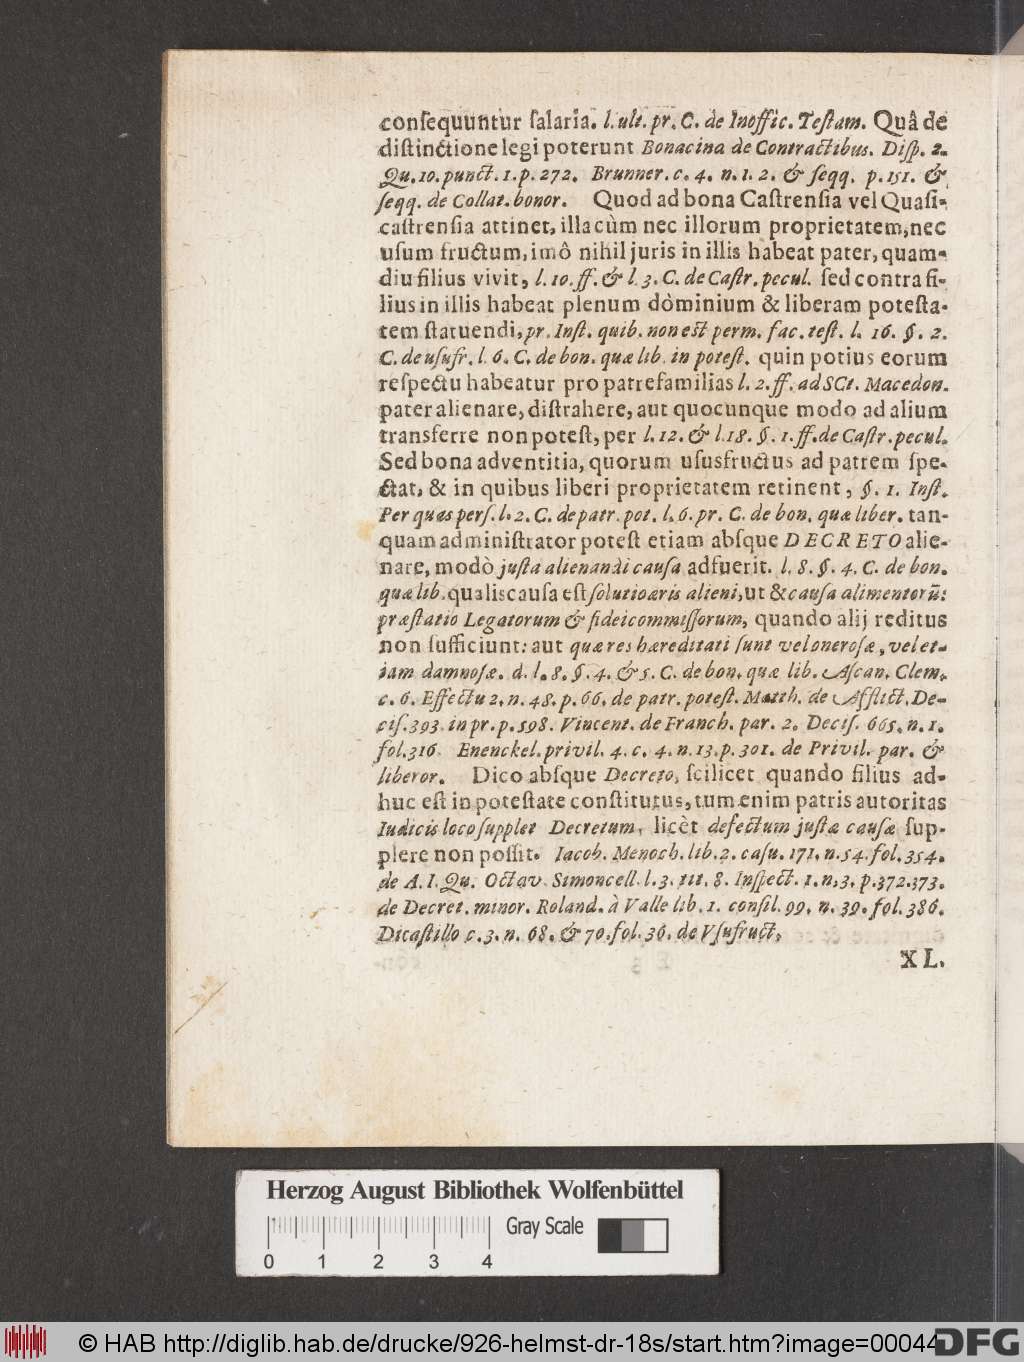 conſequuntur ſalaria. l. ult. pr. C. de Inoffic. Teſtam. Quâ de
diſtinctione legi poterunt Bonacina de Contractibus. Diſp. 2.
Qu. 10. punct. 1. p. 272. Brunner. c. 4. n. 1. 2. & ſeqq. p. 151. &
ſeqq. de Collat. bonor. Quod ad bona Caſtrenſia vel Quaſi-
caſtrenſia attinet, illa cùm nec illorum proprietatem, nec
uſum fructum, imô nihil juris in illis habeat pater, quam-
diu filius vivit, l. 10. ff. & l. 3. C. de Caſtr. pecul. ſed contra fi-
lius in illis habeat plenum dòminium & liberam poteſta-
tem ſtatuendi, pr. Inſt. quib. non est perm. fac. teſt. l. 16. §. 2.
C. de uſufr. l. 6. C. de bon. quæ lib. in poteſt. quin potius eorum
reſpectu habeatur pro patrefamilias l. 2. ff. ad SCt. Macedon.
pater alienare, diſtrahere, aut quocunque modo ad alium
transferre non poteſt, per l. 12. & l. 18. §. 1. ff. de Caſtr. pecul.
Sed bona adventitia, quorum uſusfructus ad patrem ſpe-
ctat, & in quibus liberi proprietatem retinent, §. 1. Inſt.
Per quas perſ. l. 2. C. de patr. pot. l. 6. pr. C. de bon. quæ liber. tan-
quam adminiſtrator poteſt etiam abſque DECRETO alie-
nare, modò juſta alienandi cauſa adfuerit. l. 8. §. 4. C. de bon.
quæ lib. qualis cauſa eſt ſolutio æris alieni, ut & cauſa alimentorū:
præſtatio Legatorum & fideicommiſſorum, quando alij reditus
non ſufficiunt: aut quæ res hæreditati ſunt vel oneroſæ, vel et-
iam damnoſæ. d. l. 8. §. 4. & 5. C. de bon. quæ lib. Aſcan. Clem.
c. 6. Effectu 2. n. 48. p. 66. de patr. poteſt. Matth. de Afflict. De-
ciſ. 393. in pr. p. 598. Vincent. de Franch. par. 2. Deciſ. 665. n. 1.
fol. 316. Enenckel. privil. 4. c. 4. n. 13. p. 301. de Privil. par. &
liberor. Dico abſque Decreto, ſcilicet quando filius ad-
huc eſt in poteſtate conſtitutus, tum enim patris autoritas
Iudicis loco ſupplet Decretum, licèt defectum juſtæ cauſæ ſup-
plere non poſſit. Iacob. Menoch. lib. 2. caſu. 171. n. 54. fol. 354.
de A. I. Qu. Octav. Simoncell. l. 3. tit. 8. Inſpect. 1. n. 3. p. 372. 373.
de Decret. minor. Roland. à Valle lib. 1. conſil. 99. n. 39. fol. 386.
Dicaſtillo c. 3. n. 68. & 70. fol. 36. de Vſufruct.
XL.
Herzog August Bibliothek Wolfenbüttel
Gray Scale
0 1 2 3 4
© HAB http://diglib.hab.de/drucke/926-helmst-dr-18s/start.htm?image=00044
DFG